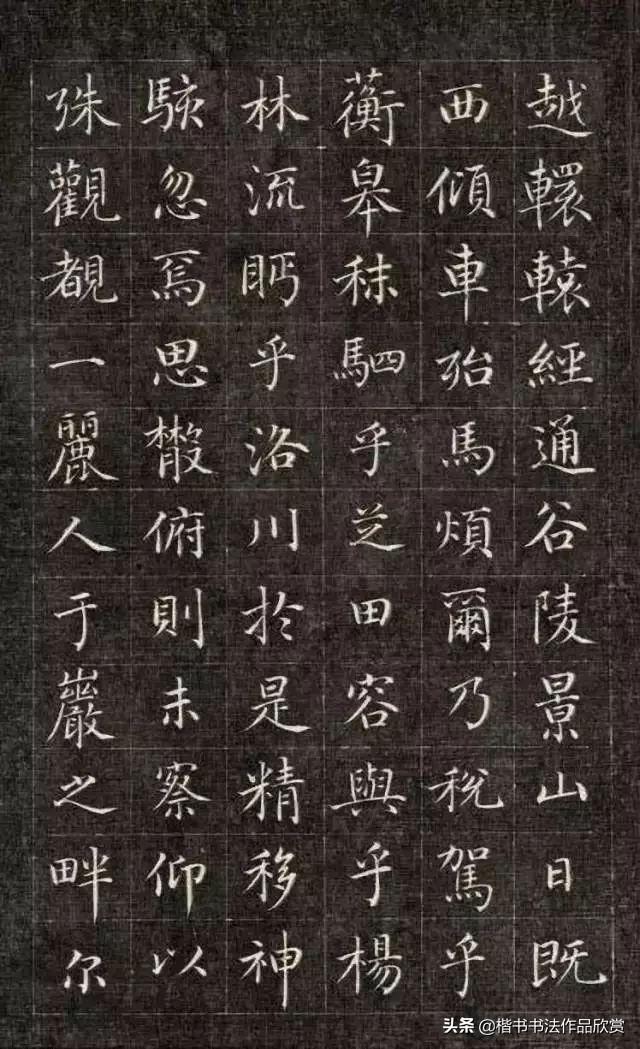 越轘轅經通谷陵景山日既
西傾車殆馬煩爾乃稅駕乎
蘅皋秣駟乎芝田容與乎楊
林流眄乎洛川於是精移神
駭忽焉思散俯則未察仰以
殊觀覩一麗人于巖之畔尔
头条 @楷书书法作品欣赏